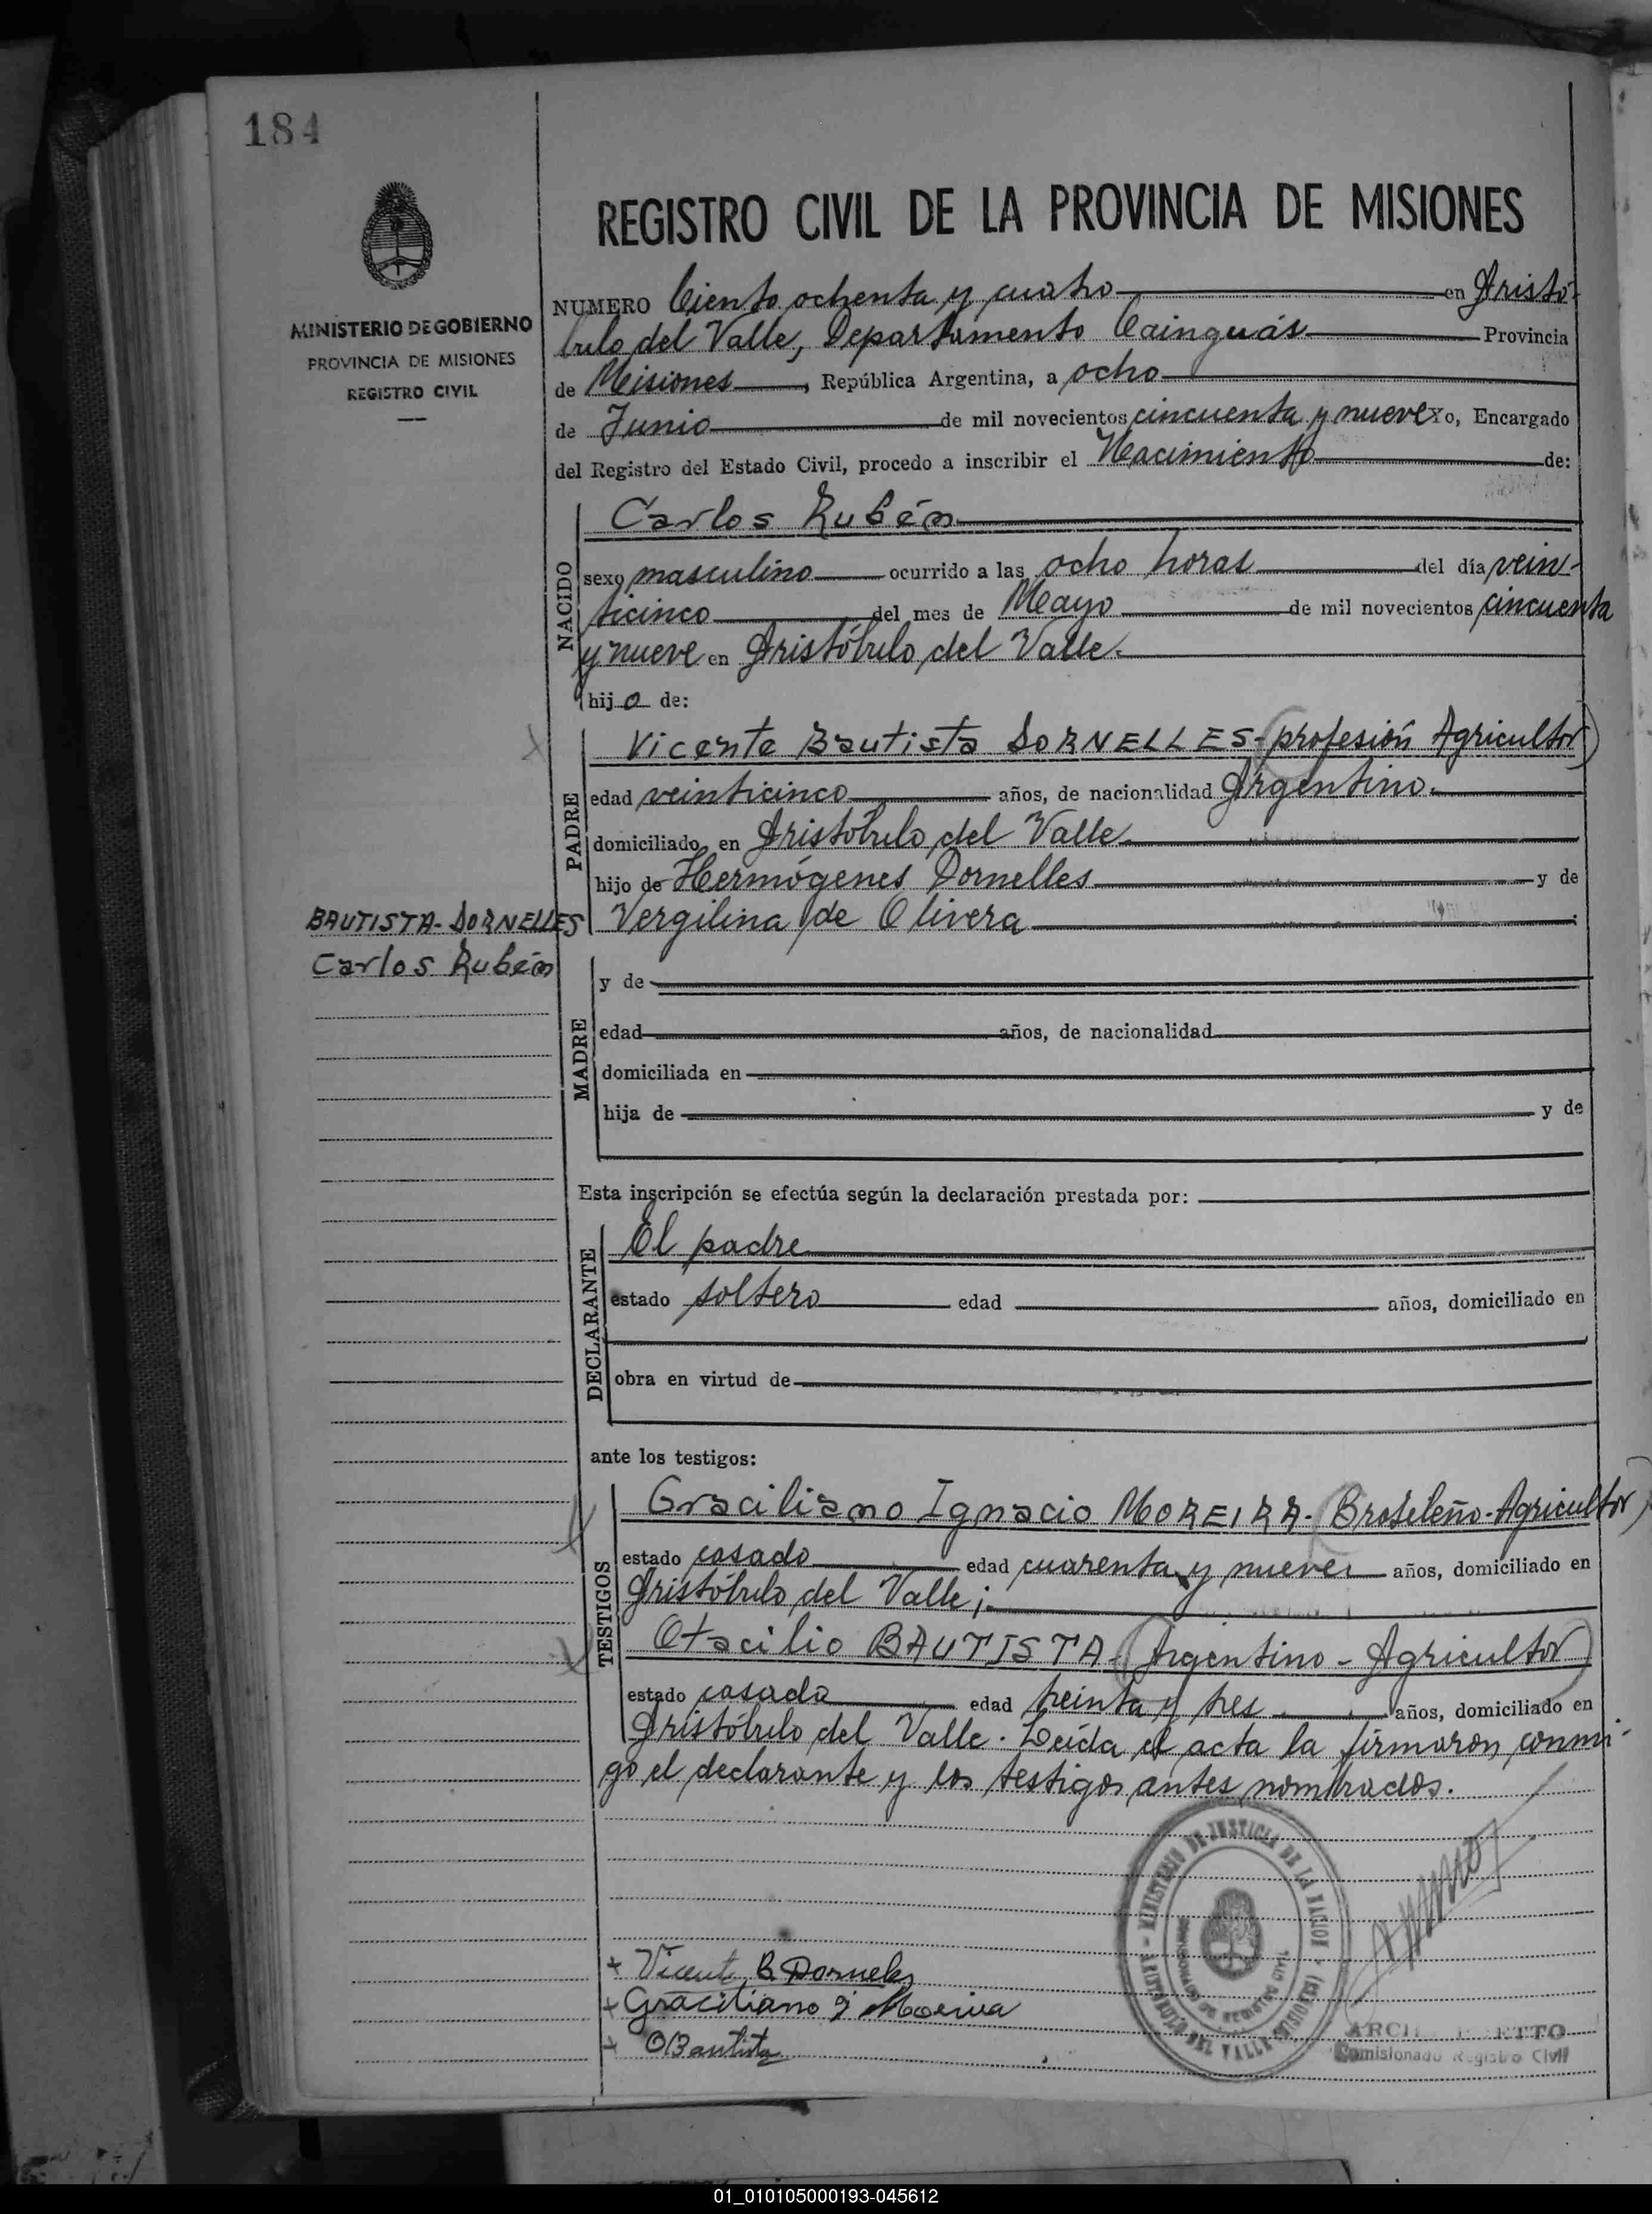 184
MINISTERIO DE GOBIERNO
PROVINCIA DE MISIONES
REGISTRO CIVIL
REGISTRO CIVIL DE LA PROVINCIA DE MISIONES
NUMERO Ciento ochenta y cuatro en Aristó-
bulo del Valle, Departamento Cainguás Provincia
de Misiones, República Argentina, a ocho
de Junio de mil novecientos cincuenta y nueve Yo, Encargado
del Registro del Estado Civil, procedo a inscribir el Nacimiento de:
NACIDO
Carlos Rubén
sexo masculino ocurrido a las ocho horas del día vein-
ticinco del mes de Mayo de mil novecientos cincuenta
y nueve en Aristóbulo del Valle.
hijo de:
PADRE
Vicente Bautista DORNELLES-(profesión Agricultor)
edad veinticinco años, de nacionalidad Argentino.
domiciliado en Aristóbulo del Valle
hijo de Hermógenes Dornelles y de
Vergilina de Olivera
BAUTISTA-DORNELLES
Carlos Rubén
MADRE
y de
edad años, de nacionalidad
domiciliada en
hija de y de
Esta inscripción se efectúa según la declaración prestada por:
DECLARANTE
El padre
estado soltero edad años, domiciliado en
obra en virtud de
ante los testigos:
TESTIGOS
Graciliano Ignacio MOREIRA-(Brasileño-Agricultor)
estado casado edad cuarenta y nueve años, domiciliado en
Aristóbulo del Valle;
Otacilio BAUTISTA-(Argentino-Agricultor)
estado casado edad treinta y tres años, domiciliado en
Aristóbulo del Valle. Leída el acta la firmaron conmi-
go el declarante y los testigos antes nombrados.
MINISTERIO DE JUSTICIA DE LA NACION
ARISTOBULO DEL VALLE (MISIONES)
+ Vicente B Dorneles
+ Graciliano I Moreira
+ OBautista
Comisionado Registro Civil
01_010105000193-045612